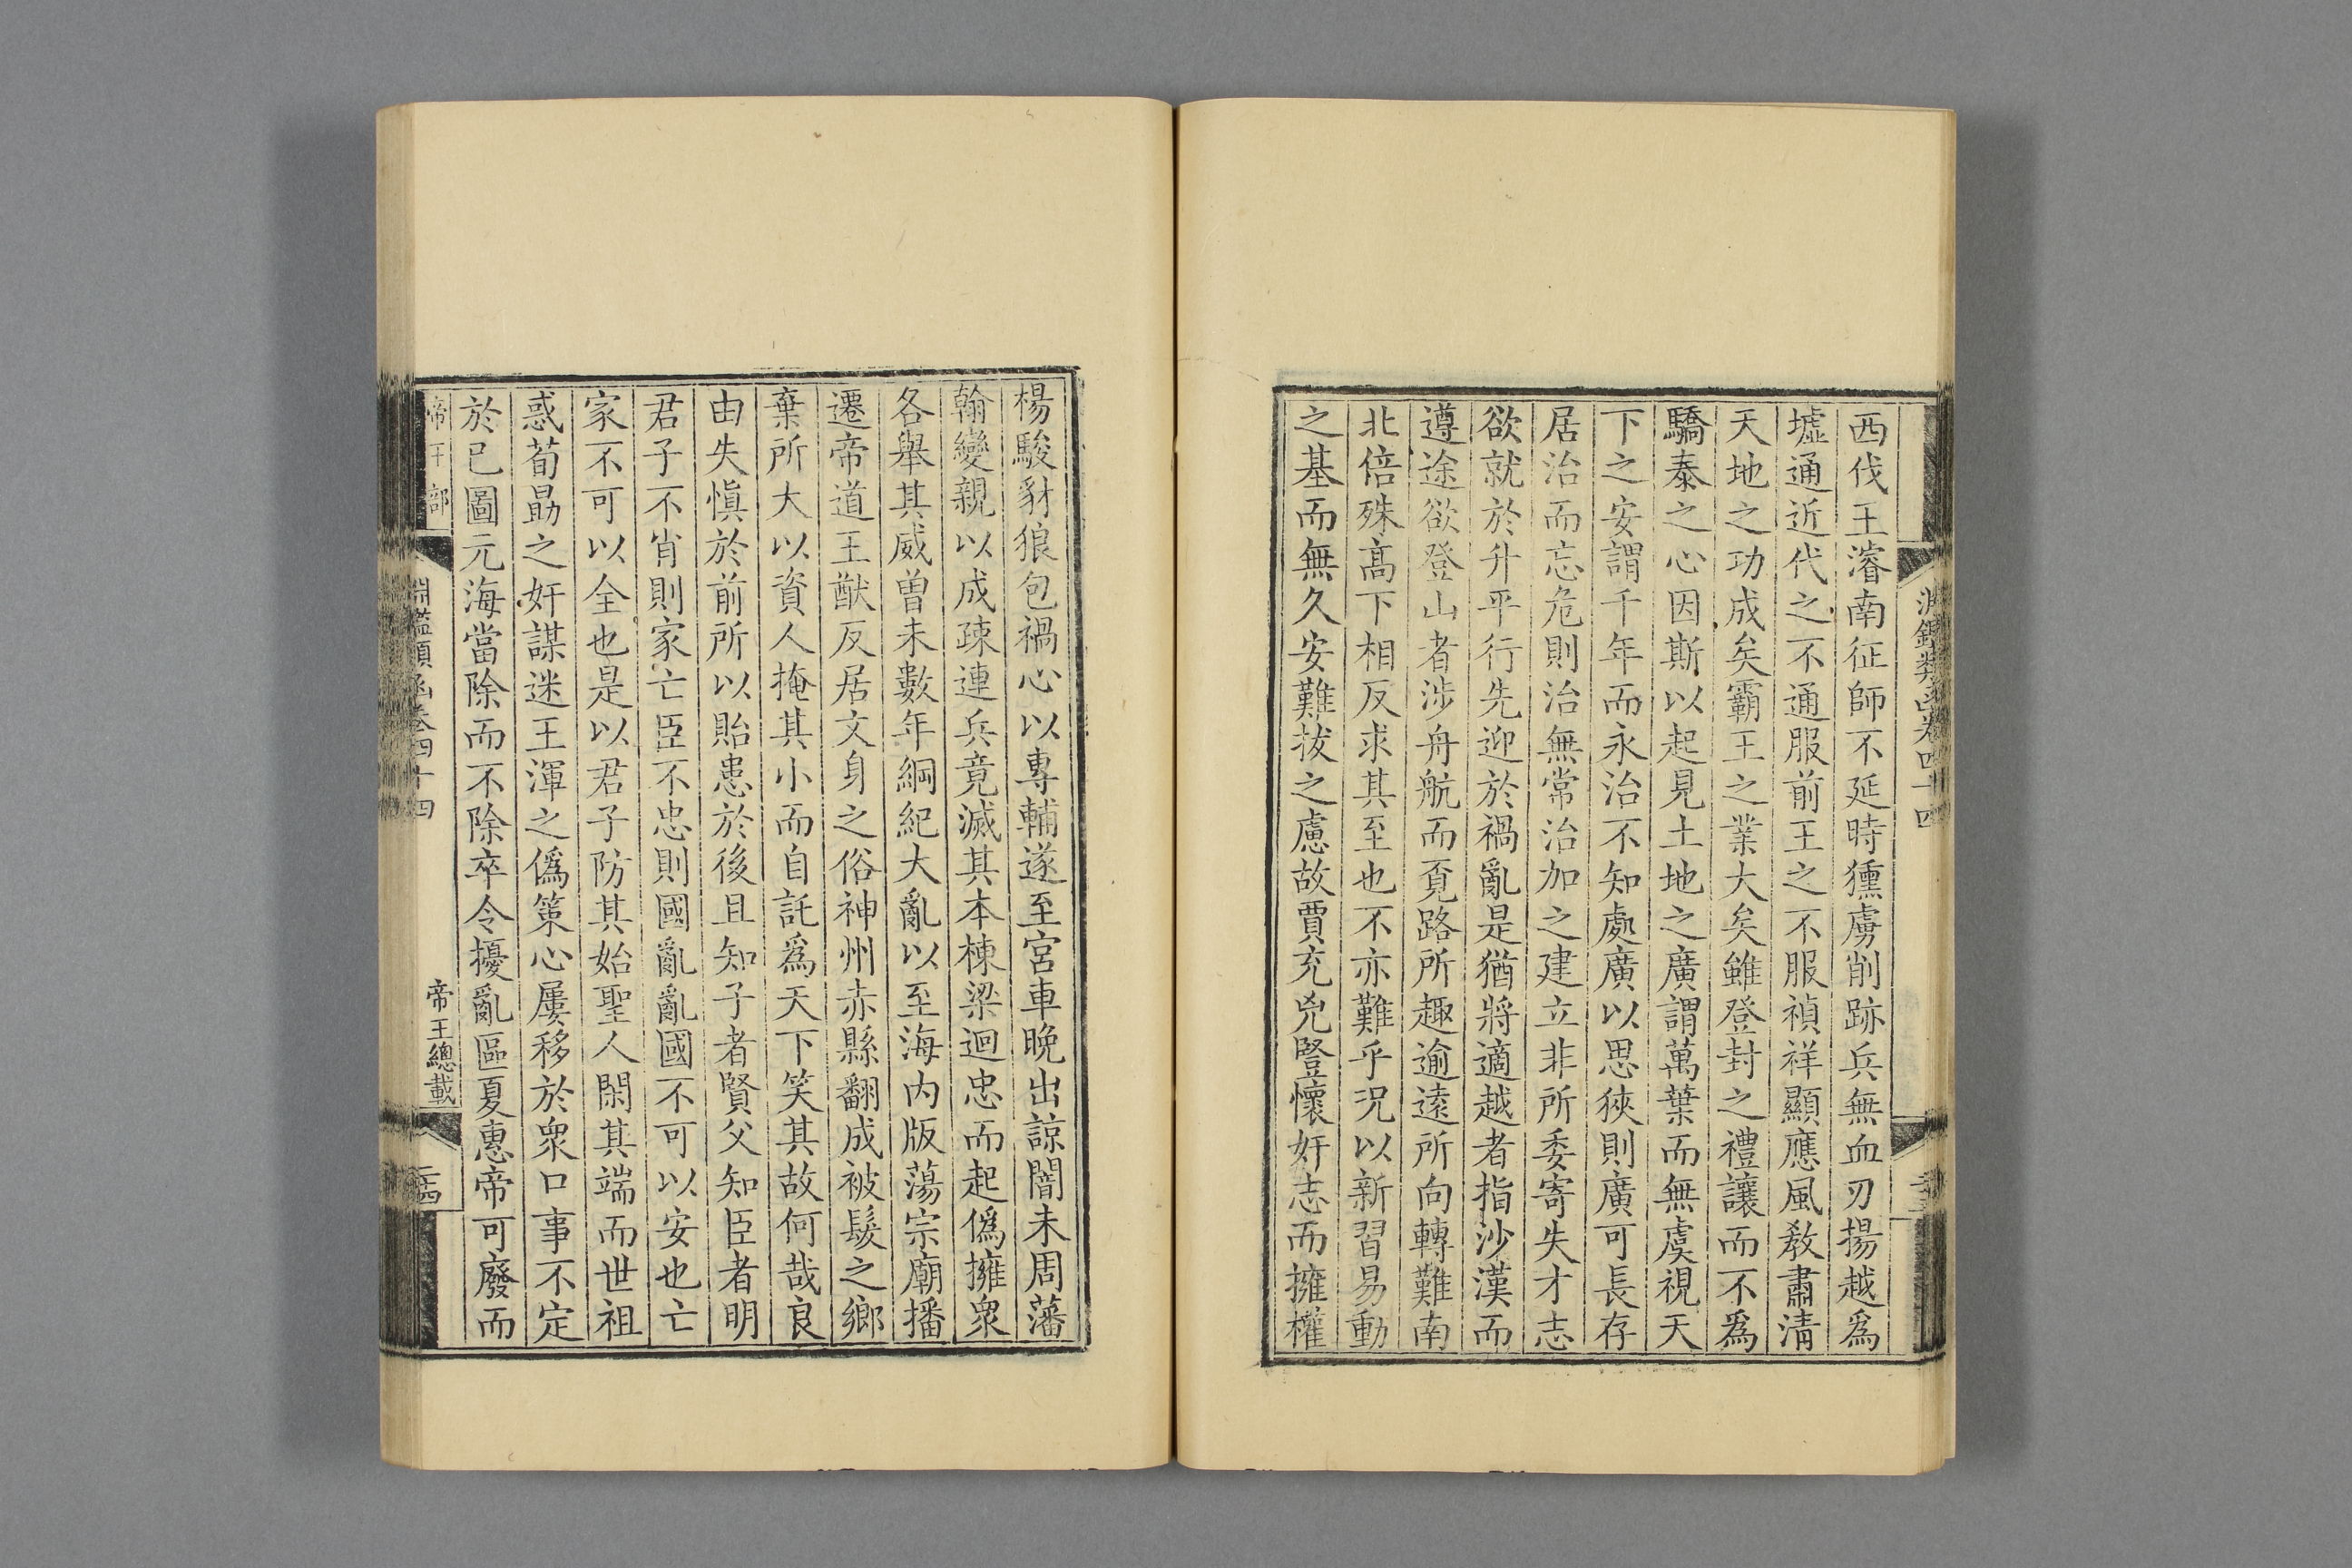 西伐王濬南征師不延時獯虜削跡兵無血刃揚越爲
墟通近代之不通服前王之不服禎祥顯應風教肅淸
天地之功成矣霸王之業大矣雖登封之禮讓而不爲
驕泰之心因斯以起見土地之廣謂萬葉而無虞視天
下之安謂千年而永治不知處廣以思狹則廣可長存
居治而忘危則治無常治加之建立非所委寄失才志
欲就於升平行先迎於禍亂是猶將適越者指沙漠而
遵途欲登山者涉舟航而覓路所趣逾遠所向轉難南
北倍殊高下相反求其至也不亦難乎況以新習易動
之基而無久安難拔之慮故賈充兇豎懷奸志而擁權
楊駿豺狼包禍心以專輔遂至宮車晚出諒闇未周藩
翰變親以成疎連兵竟滅其本棟梁迴忠而起僞擁衆
各舉其威曾未數年綱紀大亂以至海內版蕩宗廟播
遷帝道王猷反居文身之俗神州赤縣翻成被髮之鄉
棄所大以資人掩其小而自託爲天下笑其故何哉良
由失愼於前所以貽患於後且知子者賢父知臣者明
君子不肖則家亡臣不忠則國亂亂國不可以安也亡
家不可以全也是以君子防其始聖人閑其端而世祖
惑荀勗之奸謀迷王渾之僞策心屢移於衆口事不定
於已圖元海當除而不除卒令擾亂區夏惠帝可廢而
帝王部
淵鑑類函卷四十四
帝王總載